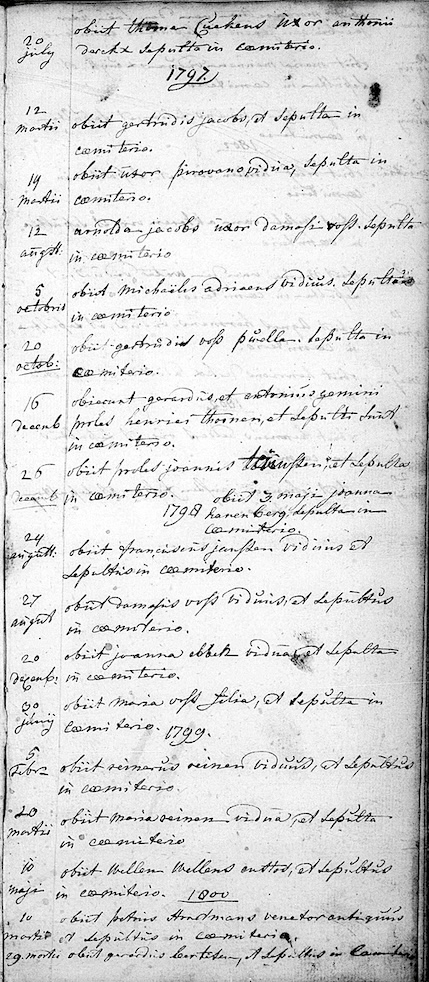 20 july obiit Uxor anthonii
derckx Sepulta in cœmiterio.
1797
12 martii obiit gertrudis jacobs, et Sepulta in
cœmiterio.
19 martii obiit uxor vidua, Sepulta in
cœmiterio.
12 augti. arnolda jacobs uxor damasi voss. Sepulta
in cœmiterio
5 octobris obiit Michaelis adriaens viduus. Sepultus
in cœmiterio
20 octob: obiit gertrudis voss puella. Sepulta in
cœmiterio.
16 decemb obierunt gerardus, et gemini
proles henrici thonen, et Sepulti Sunt
in cœmiterio.
26 decemb obiit proles joannis et Sepulta
in cœmiterio.
1798
obiit 3. maji joanna
hanenberg, Sepulta in
cœmiterio
24 augusti: obiit franciscus janssen viduus et
Sepultus in cœmiterio.
27 august obiit damasus voss viduus, et Sepultus
in cœmiterio.
20 decemb: obiit joanna vidua, et Sepulta
in cœmiterio.
30 junij obiit Maria voss filia, et Sepulta in
cœmiterio.
1799.
5 febr obiit reinen viduus, et Sepultus
in cœmiterio.
20 martii obiit maria reinen vidua, et Sepulta
in cœmiterio
10 maji obiit Wellem Wellens et Sepultus
in cœmiterio.
1800
10 martii obiit petrus venator antiquus
et Sepultus in cœmiterio.
29. martii obiit gerardus et Sepultus in Cœmiterio